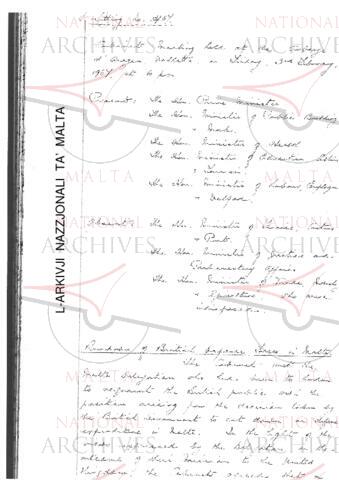 Sitting No. 4/67
Cabinet Meeting held at the Auberge
d'Aragon, Valletta, on Friday, 3rd February,
1967, at 6 p.m.
Present: The Hon. Prime Minister
The Hon. Minister of Public Building
& Works
The Hon. Minister of Health
The Hon. Minister of Education, Culture
& Tourism
The Hon. Minister of Labour, Employment
& Welfare
Absent: The Hon. Minister of Finance, Customs
& Ports
The Hon. Minister of Justice and
Parliamentary Affairs
The Hon. Minister of Trade, Industry
& Agriculture, who were
indisposed.
Rundown of British Defence Forces in Malta
The Cabinet met the
Malta Delegation who had been to London
to acquaint the British public with the
position arising from the decision taken by
the British Government to cut down defence
expenditure in Malta. In the light of the
views expressed by the Delegation on the
outcome of their mission to the United
Kingdom, the Cabinet decided that a
L-ARKIVJI NAZZJONALI TA' MALTA
NATIONAL
ARCHIVES
MALTA